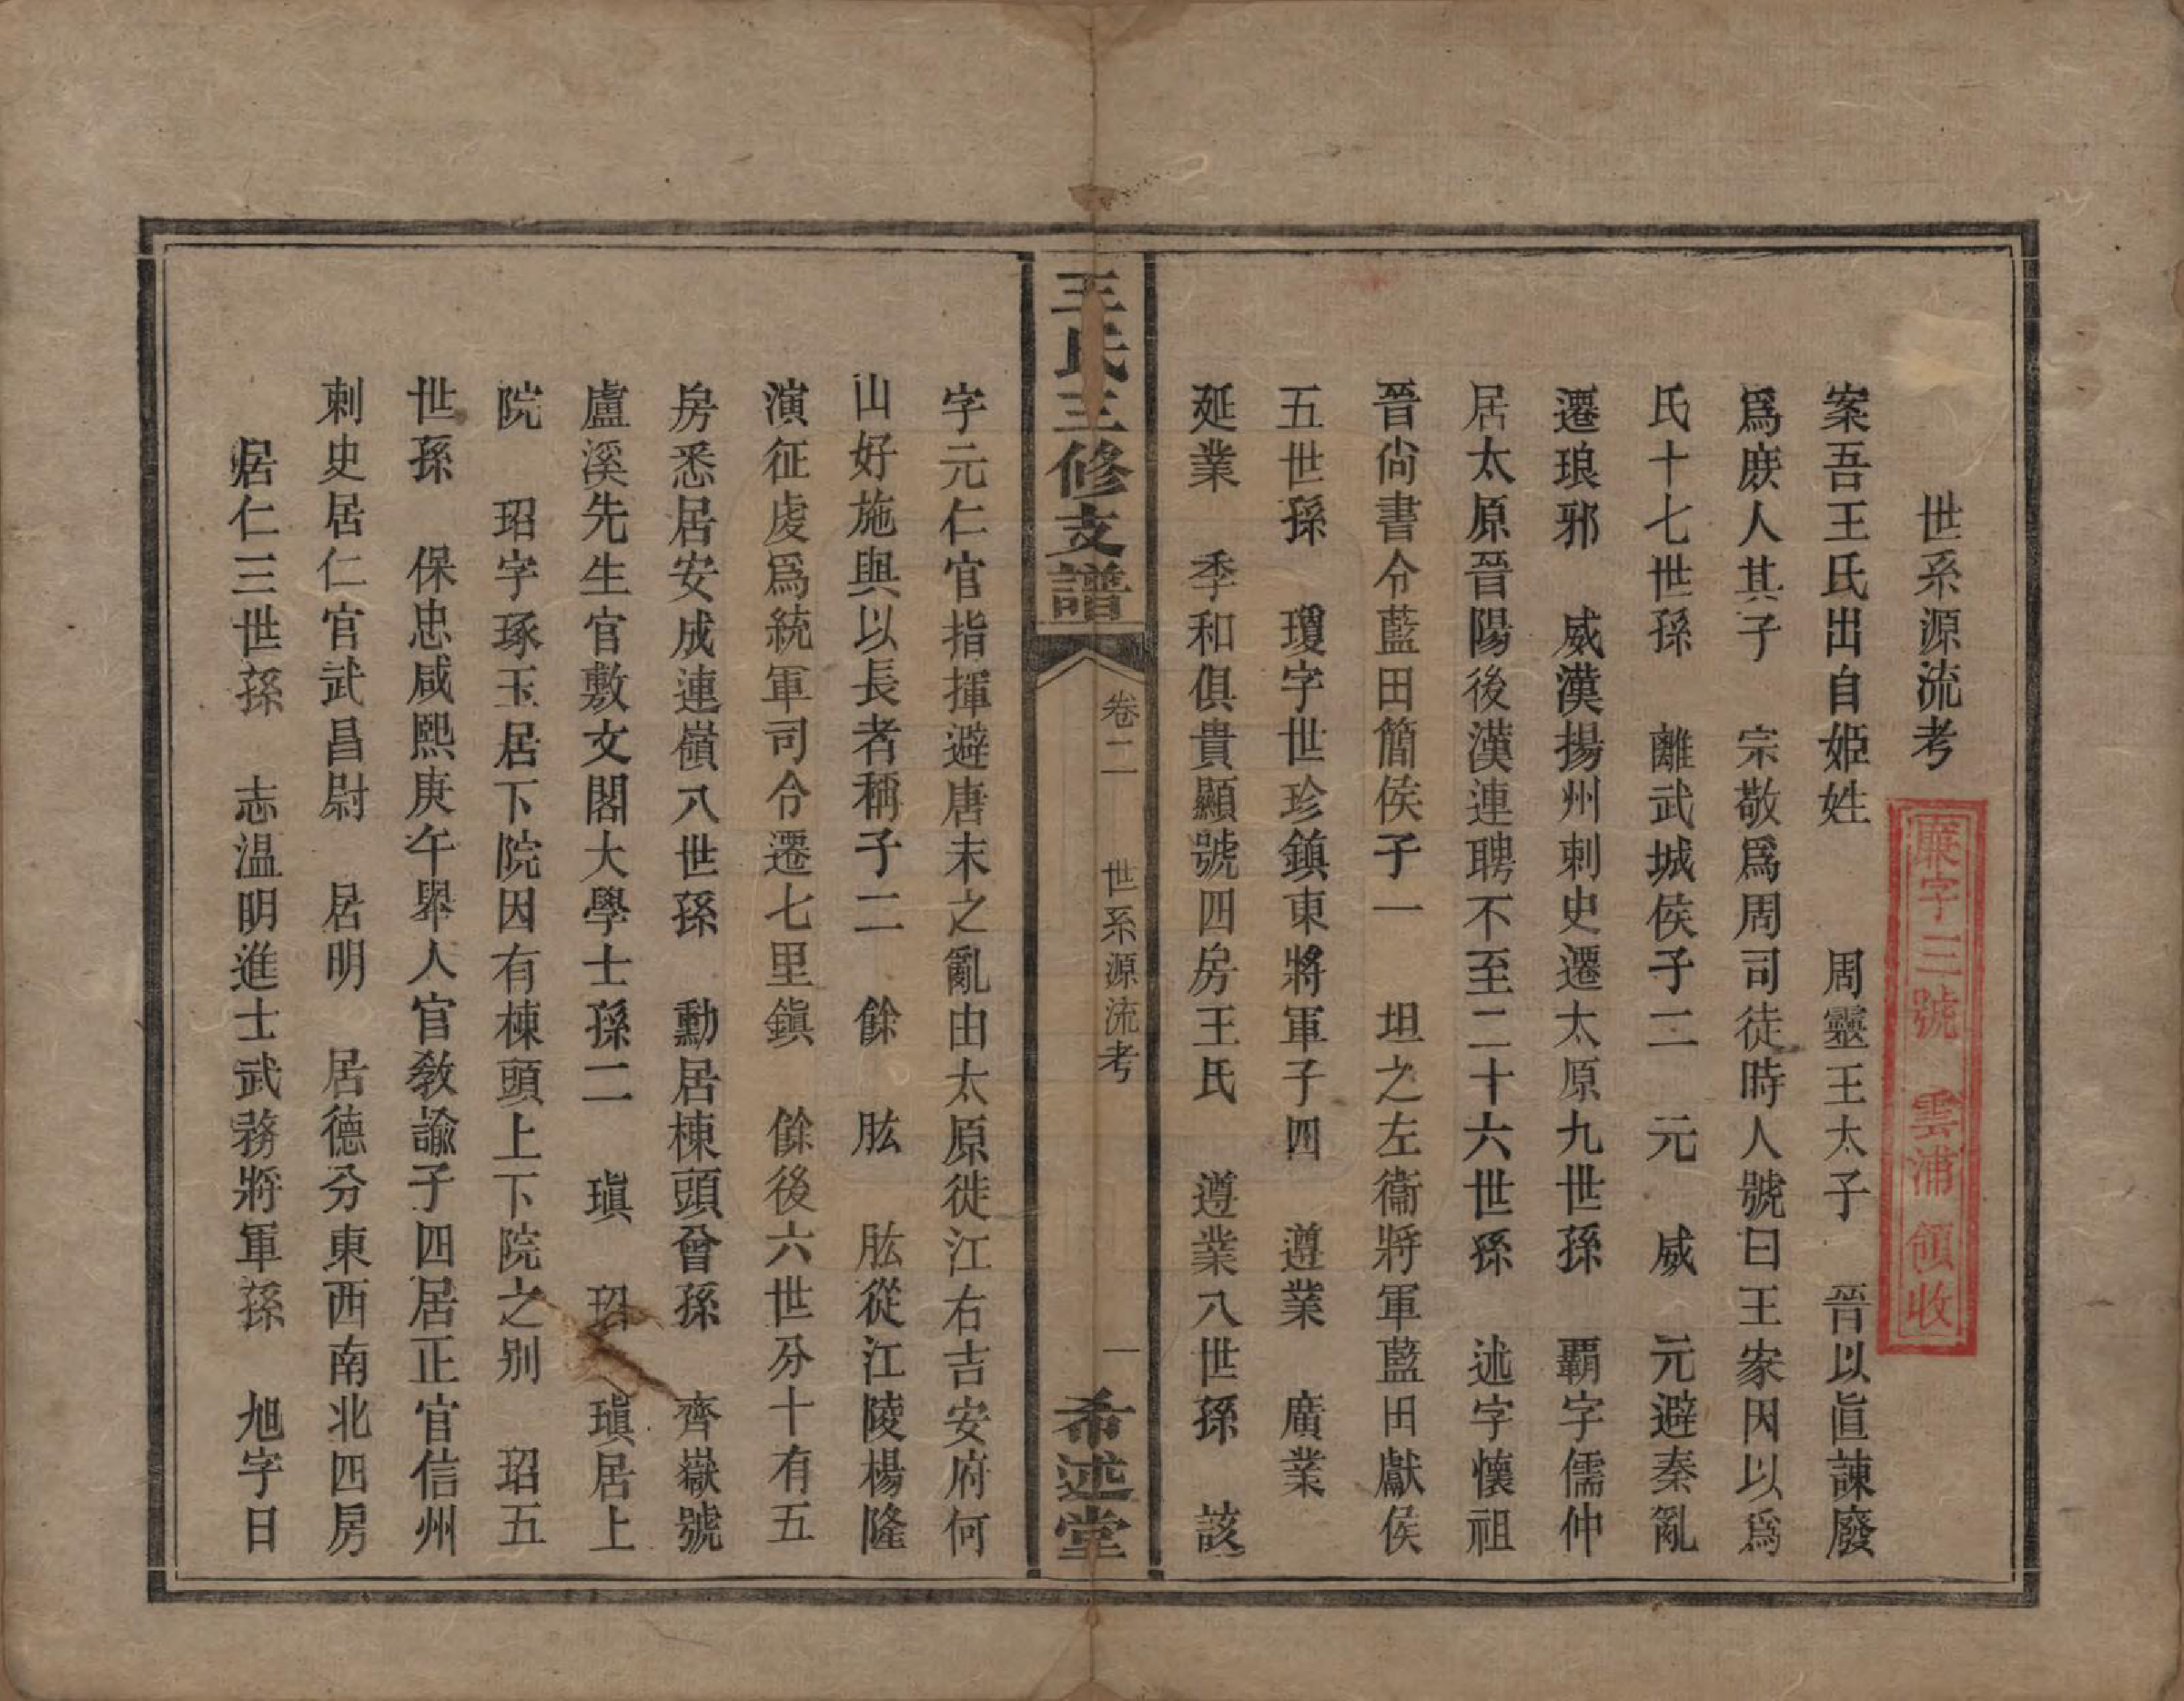 世系源流考
廉字三號 雲浦 領收
案吾王氏出自姬姓　周靈王太子　晉以直諫廢
爲庶人其子　宗敬爲周司徒時人號曰王家因以爲
氏十七世孫　離武城侯子二　元　威　元避秦亂
遷琅邪　威漢揚州刺史遷太原九世孫　覇字儒仲
居太原晉陽後漢連聘不至二十六世孫　述字懷祖
晉尙書令藍田簡侯子一　坦之左衞將軍藍田獻侯
五世孫　瓊字世珍鎮東將軍子四　遵業　廣業
延業　季和俱貴顯號四房王氏　遵業八世孫　該
王氏三修支譜　卷二　世系源流考　一　希述堂
字元仁官指揮避唐末之亂由太原徙江右吉安府何
山好施與以長者稱子二　餘　肱　肱從江陵楊隆
演征虔爲統軍司令遷七里鎭　餘後六世分十有五
房悉居安成連嶺八世孫　勳居棟頭曾孫　齊嶽號
盧溪先生官敷文閣大學士孫二　瑱　玿　瑱居上
院　玿字琢玉居下院因有棟頭上下院之别　玿五
世孫　保忠咸熙庚午舉人官敎諭子四居正官信州
刺史居仁官武昌尉　居明　居德分東西南北四房
居仁三世孫　志溫明進士武務將軍孫　旭字日